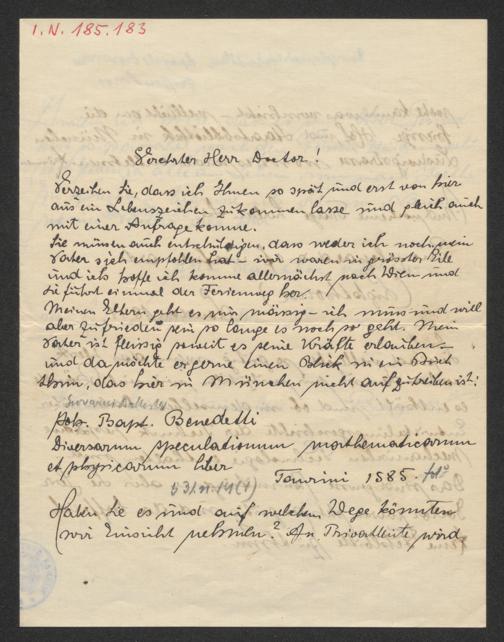 I. N. 185.183
Verehrter Herr Doctor!
Verzeihen Sie, dass ich Ihnen so spät und erst von hier
aus ein Lebenszeichen zukommen lasse und gleich auch
mit einer Anfrage komme.
Sie müssen auch entschuldigen, dass weder ich noch mein
Vater sich empfohlen hat – wir waren in grösster Eile
und ich hoffe ich komme allernächst nach Wien und
Sie führt einmal der Ferienweg her.
Meinen Eltern geht es nur mässig – ich muss und will
aber zufrieden sein so lange es noch so geht. Mein
Vater ist fleissig soweit es seine Kräfte erlauben –
und da möchte er gerne einen Blick in ein Buch
thun, das hier in München nicht aufzutreiben ist:
Joh. Bapt. Benedetti
Diversarum speculationum mathematicarum
et physicarum liber
Taurini 1585. fol°
Haben Sie es und auf welchem Wege könnten
wir Einsicht nehmen? An Privatleute wird